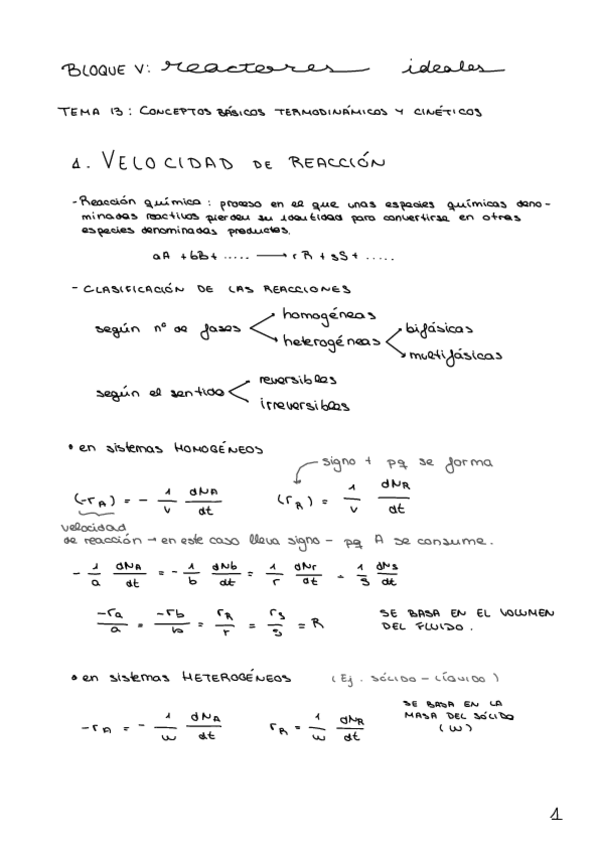 BLOQUE V: reactores ideales
TEMA 13: CONCEPTOS BÁSICOS TERMODINÁMICOS Y CINÉTICOS
1. VELOCIDAD DE REACCIÓN
- Reacción química: proceso en el que unas especies químicas deno-
minadas reactivos pierden su identidad para convertirse en otras
especies denominadas productos.
aA + bB + ..... ⟶ rR + sS + .....
- CLASIFICACIÓN DE LAS REACCIONES
según nº de fases < homogéneas
heterogéneas < bifásicas
multifásicas
según el sentido < reversibles
irreversibles
• en sistemas HOMOGÉNEOS
signo + pq se forma
(-rA) = - 1/V dNA/dt (rR) = 1/V dNR/dt
velocidad
de reacción → en este caso lleva signo - pq A se consume.
- 1/a dNA/dt = - 1/b dNb/dt = 1/r dNr/dt = 1/s dNs/dt
-ra/a = -rb/b = rR/r = rs/s = R SE BASA EN EL VOLUMEN
DEL FLUIDO.
• en sistemas HETEROGÉNEOS (Ej. SÓLIDO - LÍQUIDO)
-rA = - 1/W dNA/dt rR = 1/W dNR/dt SE BASA EN LA
MASA DEL SÓLIDO
(W)
1